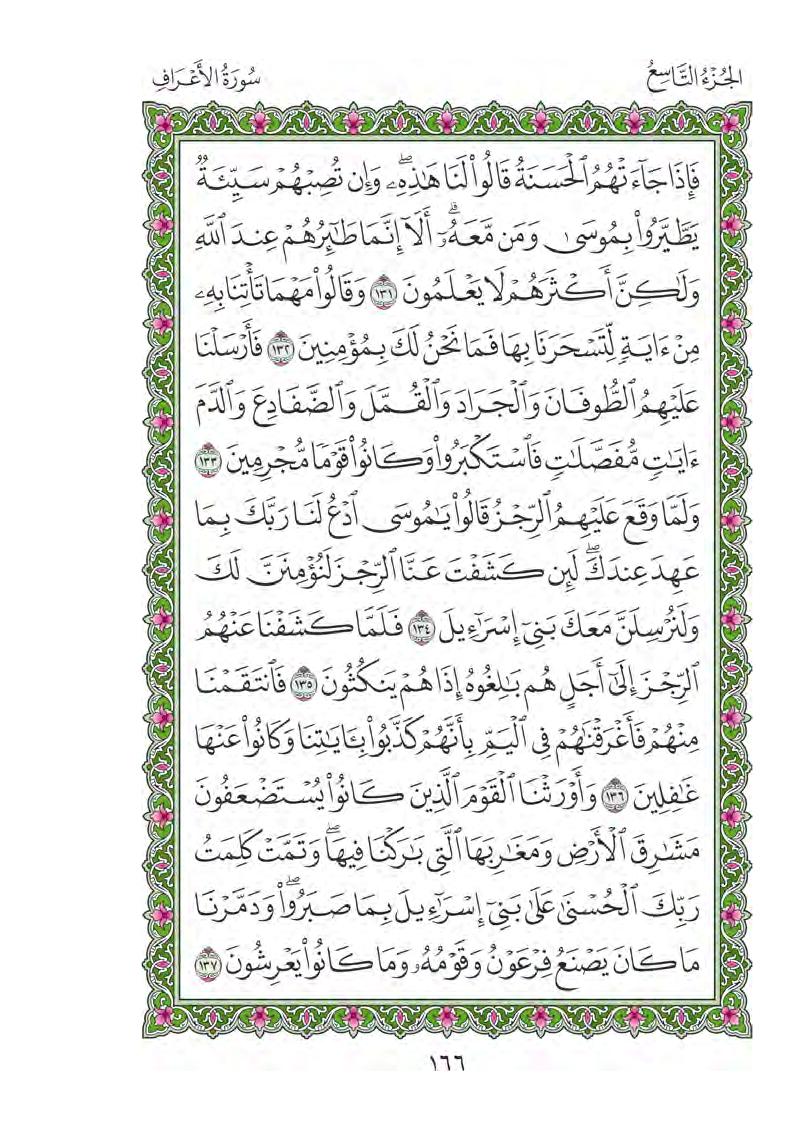 الجُزْءُ التَّاسِعُ
سُورَةُ الأَعْرَافِ
فَإِذَا جَآءَتْهُمُ ٱلْحَسَنَةُ قَالُوا۟ لَنَا هَـٰذِهِۦ ۖ وَإِن تُصِبْهُمْ سَيِّئَةٌۭ
يَطَّيَّرُوا۟ بِمُوسَىٰ وَمَن مَّعَهُۥٓ ۗ أَلَآ إِنَّمَا طَـٰٓئِرُهُمْ عِندَ ٱللَّهِ
وَلَـٰكِنَّ أَكْثَرَهُمْ لَا يَعْلَمُونَ ١٣١ وَقَالُوا۟ مَهْمَا تَأْتِنَا بِهِۦ
مِنْ ءَايَةٍۢ لِّتَسْحَرَنَا بِهَا فَمَا نَحْنُ لَكَ بِمُؤْمِنِينَ ١٣٢ فَأَرْسَلْنَا
عَلَيْهِمُ ٱلطُّوفَانَ وَٱلْجَرَادَ وَٱلْقُمَّلَ وَٱلضَّفَادِعَ وَٱلدَّمَ
ءَايَـٰتٍۢ مُّفَصَّلَـٰتٍۢ فَٱسْتَكْبَرُوا۟ وَكَانُوا۟ قَوْمًۭا مُّجْرِمِينَ ١٣٣
وَلَمَّا وَقَعَ عَلَيْهِمُ ٱلرِّجْزُ قَالُوا۟ يَـٰمُوسَى ٱدْعُ لَنَا رَبَّكَ بِمَا
عَهِدَ عِندَكَ ۖ لَئِن كَشَفْتَ عَنَّا ٱلرِّجْزَ لَنُؤْمِنَنَّ لَكَ
وَلَنُرْسِلَنَّ مَعَكَ بَنِىٓ إِسْرَٰٓءِيلَ ١٣٤ فَلَمَّا كَشَفْنَا عَنْهُمُ
ٱلرِّجْزَ إِلَىٰٓ أَجَلٍ هُم بَـٰلِغُوهُ إِذَا هُمْ يَنكُثُونَ ١٣٥ فَٱنتَقَمْنَا
مِنْهُمْ فَأَغْرَقْنَـٰهُمْ فِى ٱلْيَمِّ بِأَنَّهُمْ كَذَّبُوا۟ بِـَٔايَـٰتِنَا وَكَانُوا۟ عَنْهَا
غَـٰفِلِينَ ١٣٦ وَأَوْرَثْنَا ٱلْقَوْمَ ٱلَّذِينَ كَانُوا۟ يُسْتَضْعَفُونَ
مَشَـٰرِقَ ٱلْأَرْضِ وَمَغَـٰرِبَهَا ٱلَّتِى بَـٰرَكْنَا فِيهَا ۖ وَتَمَّتْ كَلِمَتُ
رَبِّكَ ٱلْحُسْنَىٰ عَلَىٰ بَنِىٓ إِسْرَٰٓءِيلَ بِمَا صَبَرُوا۟ ۖ وَدَمَّرْنَا
مَا كَانَ يَصْنَعُ فِرْعَوْنُ وَقَوْمُهُۥ وَمَا كَانُوا۟ يَعْرِشُونَ ١٣٧
١٦٦